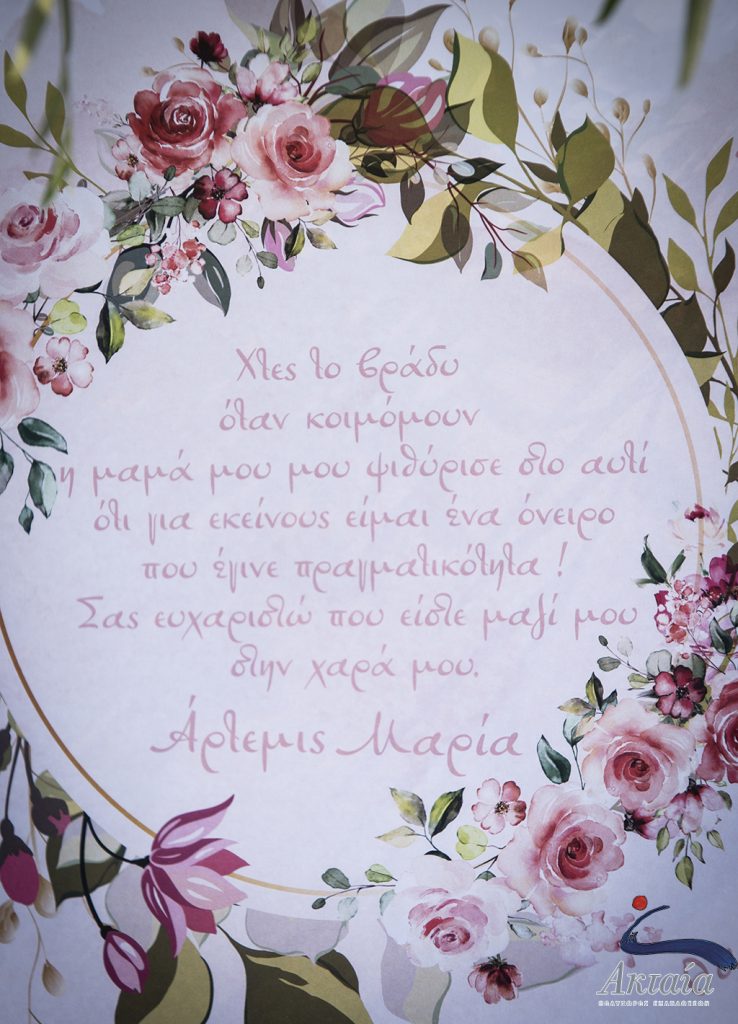 Χτες το βράδυ
όταν κοιμόμουν
η μαμά μου μου ψιθύρισε στο αυτί
ότι για εκείνους είμαι ένα όνειρο
που έγινε πραγματικότητα !
Σας ευχαριστώ που είστε μαζί μου
στην χαρά μου.
Άρτεμις Μαρία
Ακταία
ΠΟΛΥΧΩΡΟΣ ΕΚΔΗΛΩΣΕΩΝ